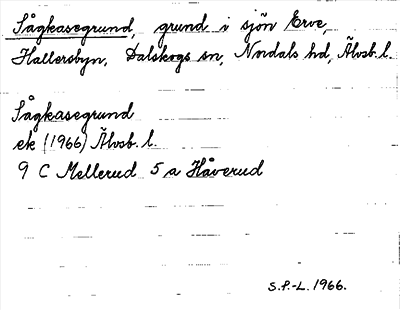 Sågkasegrund, grund i sjön Erve,
Hallersbyn, Dalskogs sn, Nordals hd, Älvsb. l.
Sågkasegrund
ek (1966) Älvsb. l.
9 C Mellerud 5 a Håverud
S.P.-L. 1966.